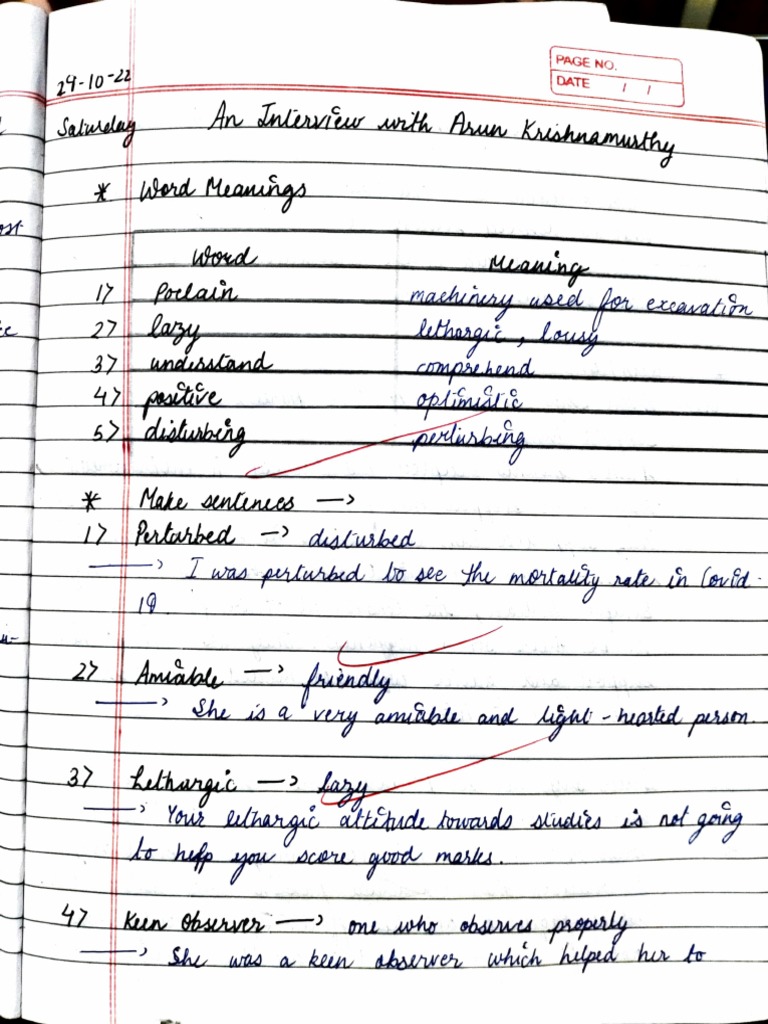 PAGE NO.
DATE / /
29-10-22
Saturday An Interview with Arun Krishnamurthy
* Word Meanings
Word Meaning
1> Poclain machinery used for excavation
2> lazy lethargic, lousy
3> understand comprehend
4> positive optimistic
5> disturbing perturbing
* Make sentences →
1> Perturbed → disturbed
→ I was perturbed to see the mortality rate in Covid-
19.
2> Amiable → friendly
→ She is a very amiable and light-hearted person.
3> Lethargic → lazy
→ Your lethargic attitude towards studies is not going
to help you score good marks.
4> Keen Observer → one who observes properly
→ She was a keen observer which helped her to